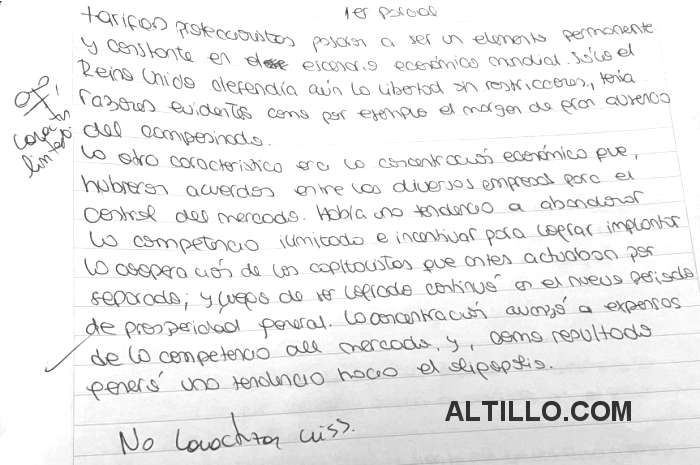 1er parcial
tarifas proteccionistas pasaron a ser un elemento permanente
y constante en el escenario económico mundial. Sólo el
Reino Unido defendía aún la libertad sin restricciones, tenía
razones evidentes como por ejemplo el margen de gran ausencia
del campesinado.
La otra característica era la concentración económica que,
hubieron acuerdos entre las diversas empresas para el
control del mercado. Había una tendencia a abandonar
la competencia ilimitada e incentivar para lograr implantar
la cooperación de los capitalistas que antes actuaban por
separado; y luego de ser logrado continuó en el nuevo periodo
de prosperidad general. La concentración avanzó a expensas
de la competencia del mercado, y, como resultado
generó una tendencia hacia el oligopolio.
ALTILLO.COM
No